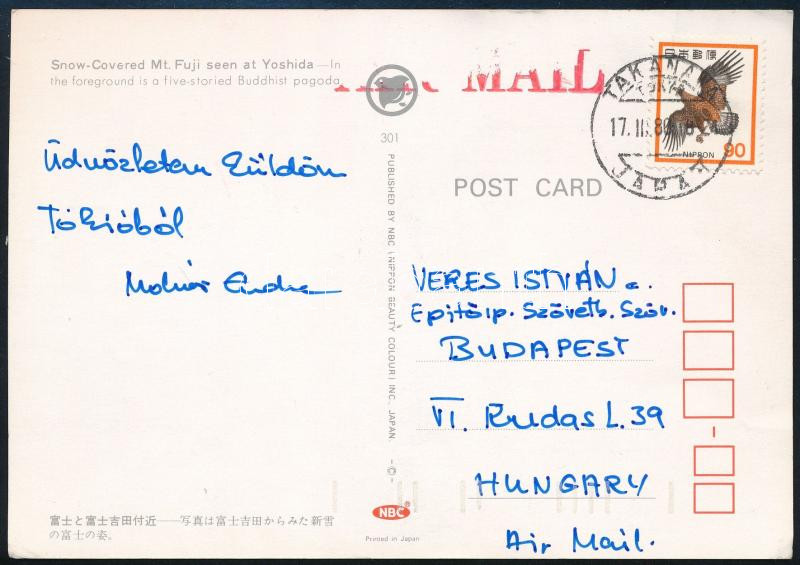 Snow-Covered Mt. Fuji seen at Yoshida — In
the foreground is a five-storied Buddhist pagoda.
AIR MAIL
TAKANAWA
TOKYO
17. III. 80
JAPAN
日本郵便
NIPPON 90
301
POST CARD
PUBLISHED BY NBC (NIPPON BEAUTY COLOUR) INC., JAPAN
Üdvözletem küldöm
Tókióból
Molnár Endre
VERES ISTVÁN
Építőip. Szövetk. Szöv.
BUDAPEST
VI. Rudas L. 39
HUNGARY
Air Mail.
富士と富士吉田付近——写真は富士吉田からみた新雪
の富士の姿。
NBC
Printed in Japan